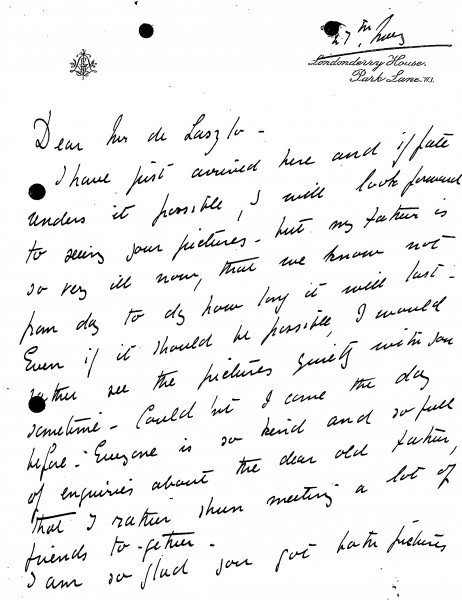 27th May
Londonderry House,
Park Lane. W.1.
Dear Mr de Laszlo -
I have just arrived here and if fate
renders it possible, I will look forward
to seeing your pictures - but my father is
so very ill now, that we know not
from day to day how long it will last -
Even if it should be possible, I would
rather see the pictures quietly with you
sometime - Could not I come the day
before - Everyone is so kind and so full
of enquiries about the dear old father,
that I rather shun meeting a lot of
friends to-gether -
I am so glad you got both pictures